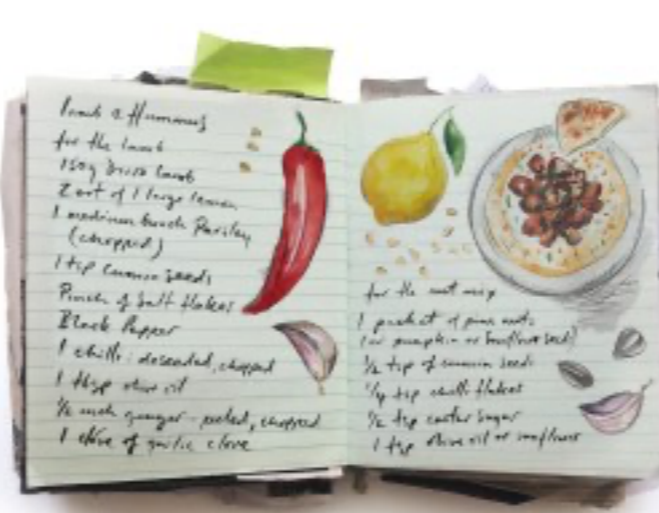 Lamb & Hummus
for the lamb
150g diced lamb
Zest of 1 large lemon
1 medium bunch Parsley
(chopped)
1 tsp cumin seeds
Pinch of Salt flakes
Black Pepper
1 chilli: deseeded, chopped
1 tbsp olive oil
½ inch ginger - peeled, chopped
1 clove of garlic clove
for the nut mix
1 packet of pine nuts
(or pumpkin or sunflower seed)
½ tsp of cumin seeds
¼ tsp chilli flakes
½ tsp caster sugar
1 tsp olive oil or sunflower